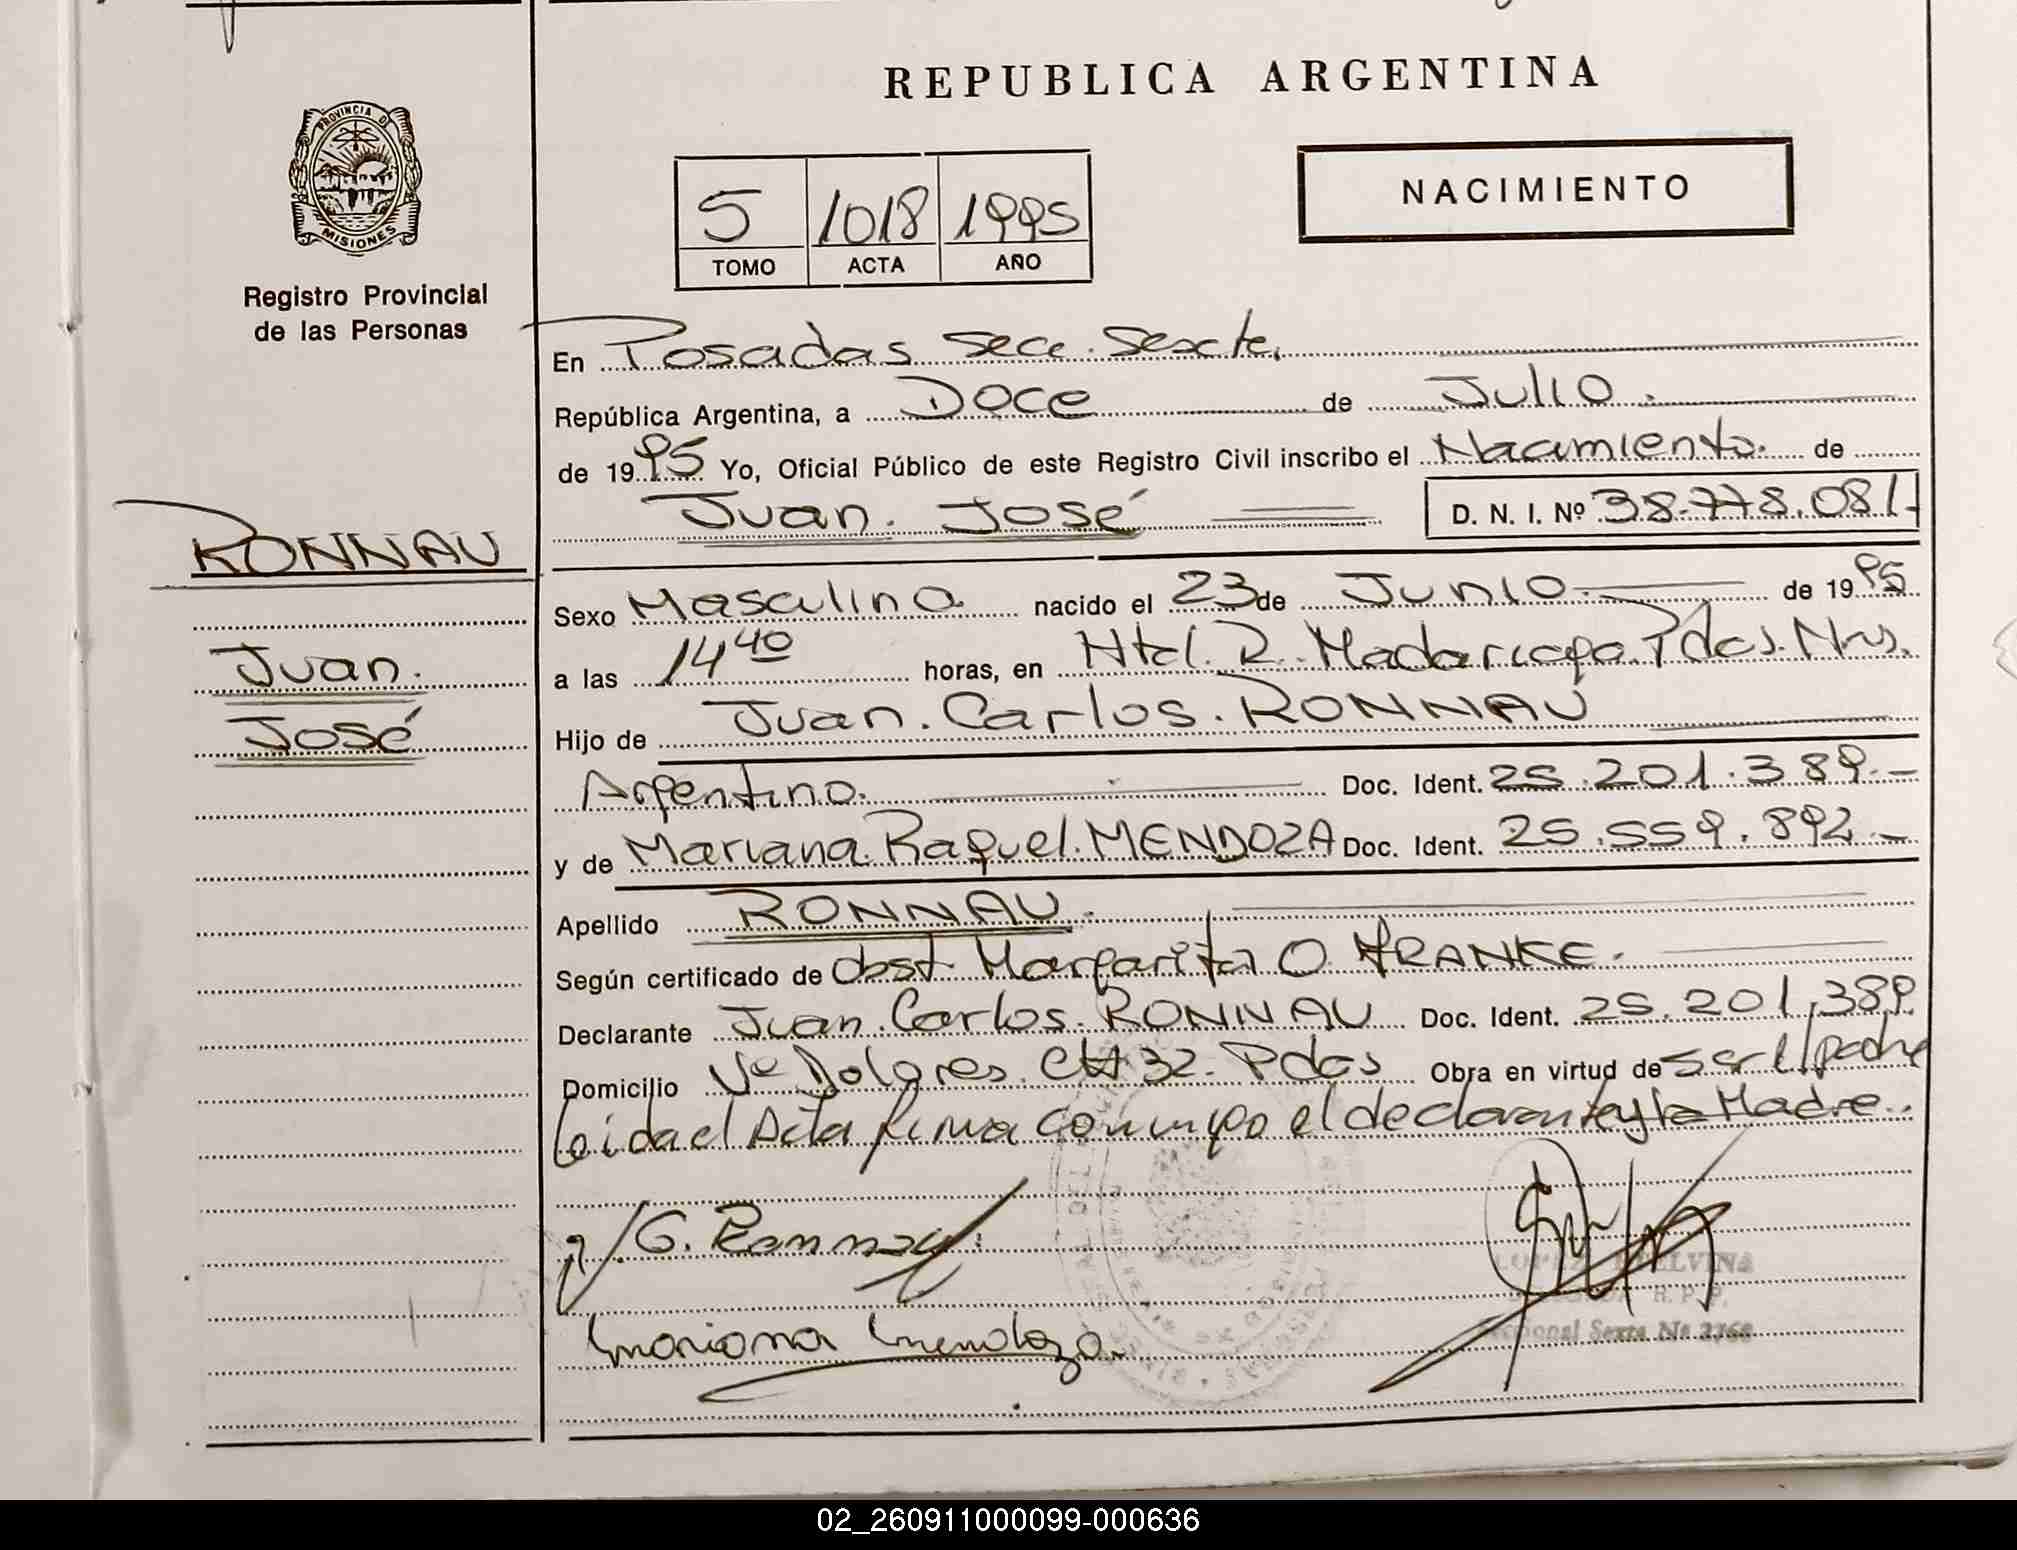 REPUBLICA ARGENTINA
PROVINCIA D
MISIONES
Registro Provincial
de las Personas
NACIMIENTO
5 1018 1995
TOMO ACTA AÑO
En Posadas Secc. Sexta.
República Argentina, a Doce de Julio.
de 1995 Yo, Oficial Público de este Registro Civil inscribo el Nacimiento. de
Juan. José D. N. I. Nº 38.778.081.-
RONNAU
Juan.
José
Sexo Masculino nacido el 23 de Junio. de 1995
a las 14 40 horas, en Htal. R. Madariaga. Pdas. Mns.
Hijo de Juan. Carlos. RONNAU
Argentino. Doc. Ident. 25.201.389.-
y de Mariana. Raquel. MENDOZA Doc. Ident. 25.559.892.-
Apellido RONNAU.
Según certificado de Obst. Margarita O. FRANKE.
Declarante Juan. Carlos. RONNAU Doc. Ident. 25.201.389.
Domicilio Vª Dolores. CH 32. Pdas Obra en virtud de ser el padre
Leida el Acta firma conmigo el declarante y la Madre.
G. Ronnau
Mariana Mendoza.
LOPEZ ELVINA
R. P. P.
Seccional Sexta Nº
02_260911000099-000636